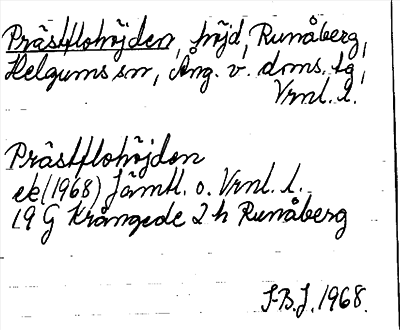 Prästflohöjden, höjd, Runåberg,
Helgums sn, Ång. v. doms. tg,
Vrnl. l.
Prästflohöjden
ek (1968) Jämtl. o. Vrnl. l.
19 G Krångede 2 h Runåberg
S.B.J. 1968.